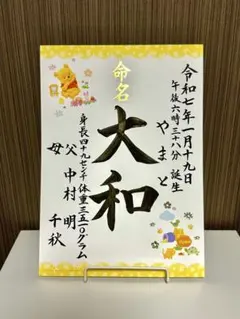 令和七年一月十九日
午後六時三十八分 誕生
命名
大和
やまと
身長四十九センチ 体重三五一〇グラム
父 中村 明
母 千秋